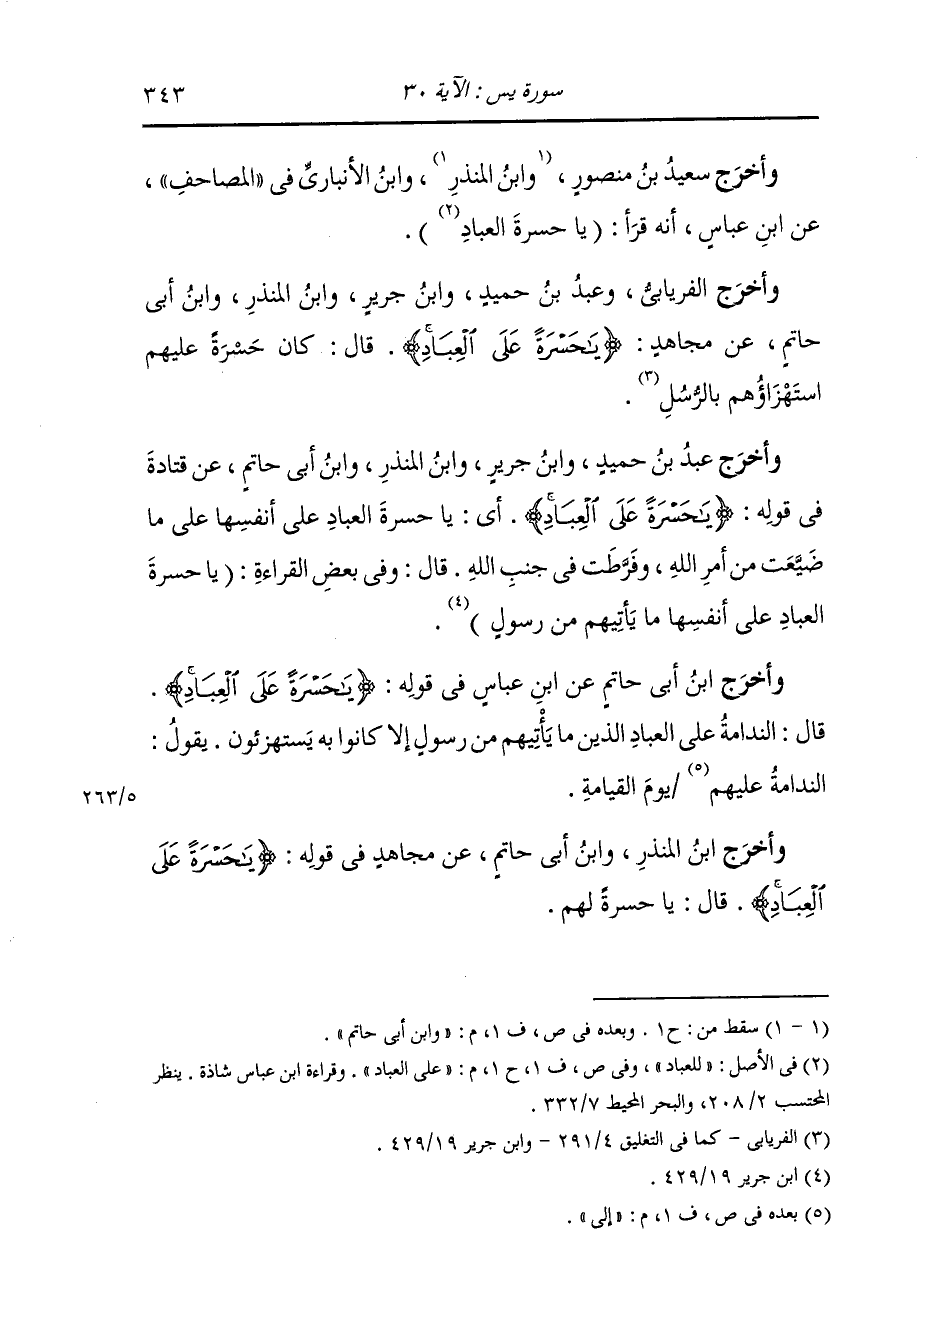 سورة يس : الآية ٣٠
٣٤٣
وأخرَج سعيدُ بنُ منصورٍ ، (١وابنُ المنذرِ١) ، وابنُ الأنباريِّ فى «المصاحفِ» ،
عن ابنِ عباسٍ ، أنه قرَأ : ( يا حسرةَ العبادِ(٢) ) .
وأخرَج الفريابىُّ ، وعبدُ بنُ حميدٍ ، وابنُ جريرٍ ، وابنُ المنذرِ ، وابنُ أبى
حاتمٍ ، عن مجاهدٍ : ﴿يَٰحَسْرَةً عَلَى ٱلْعِبَادِۚ﴾ . قال : كان حَسْرَةً عليهم
استَهْزَاؤُهم بالرُّسُلِ(٣) .
وأخرَج عبدُ بنُ حميدٍ ، وابنُ جريرٍ ، وابنُ المنذرِ ، وابنُ أبى حاتمٍ ، عن قتادةَ
فى قولِه : ﴿يَٰحَسْرَةً عَلَى ٱلْعِبَادِۚ﴾ . أى : يا حسرةَ العبادِ على أنفسِها على ما
ضَيَّعَت من أمرِ اللهِ ، وفَرَّطَت فى جنبِ اللهِ . قال : وفى بعضِ القراءةِ : ( يا حسرةَ
العبادِ على أنفسِها ما يَأتِيهم من رسولٍ )(٤) .
وأخرَج ابنُ أبى حاتمٍ عن ابنِ عباسٍ فى قولِه : ﴿يَٰحَسْرَةً عَلَى ٱلْعِبَادِۚ﴾ .
قال : الندامةُ على العبادِ الذين ما يَأْتِيهم من رسولٍ إلا كانوا به يَستهزئون . يقولُ :
الندامةُ عليهم(٥) /يومَ القيامةِ .
٢٦٣/٥
وأخرَج ابنُ المنذرِ ، وابنُ أبى حاتمٍ ، عن مجاهدٍ فى قولِه : ﴿يَٰحَسْرَةً عَلَى
ٱلْعِبَادِۚ﴾ . قال : يا حسرةً لهم .
(١ - ١) سقط من : ح١ . وبعده فى ص ، ف ١، م : «وابن أبى حاتم» .
(٢) فى الأصل : «للعباد» ، وفى ص ، ف ١، ح ١، م : «على العباد» . وقراءة ابن عباس شاذة . ينظر
المحتسب ٢٠٨/٢، والبحر المحيط ٣٣٢/٧ .
(٣) الفريابى - كما فى التغليق ٢٩١/٤ - وابن جرير ٤٢٩/١٩ .
(٤) ابن جرير ٤٢٩/١٩ .
(٥) بعده فى ص ، ف ١، م : «إلى» .